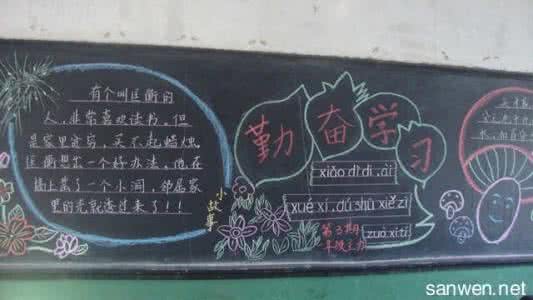 有个叫匡衡的
人，非常喜欢读书。但
是家里许穷，买不起蜡烛，
匡衡想出一个好办法，他在
墙上凿了一个小洞，邻居家
里的光就透过来了！！
小故事
勤奋学习
xiǎo dì di , ài
xué xí , dú shū xiě zì
zuò xí tí
第3期
sanwen.net